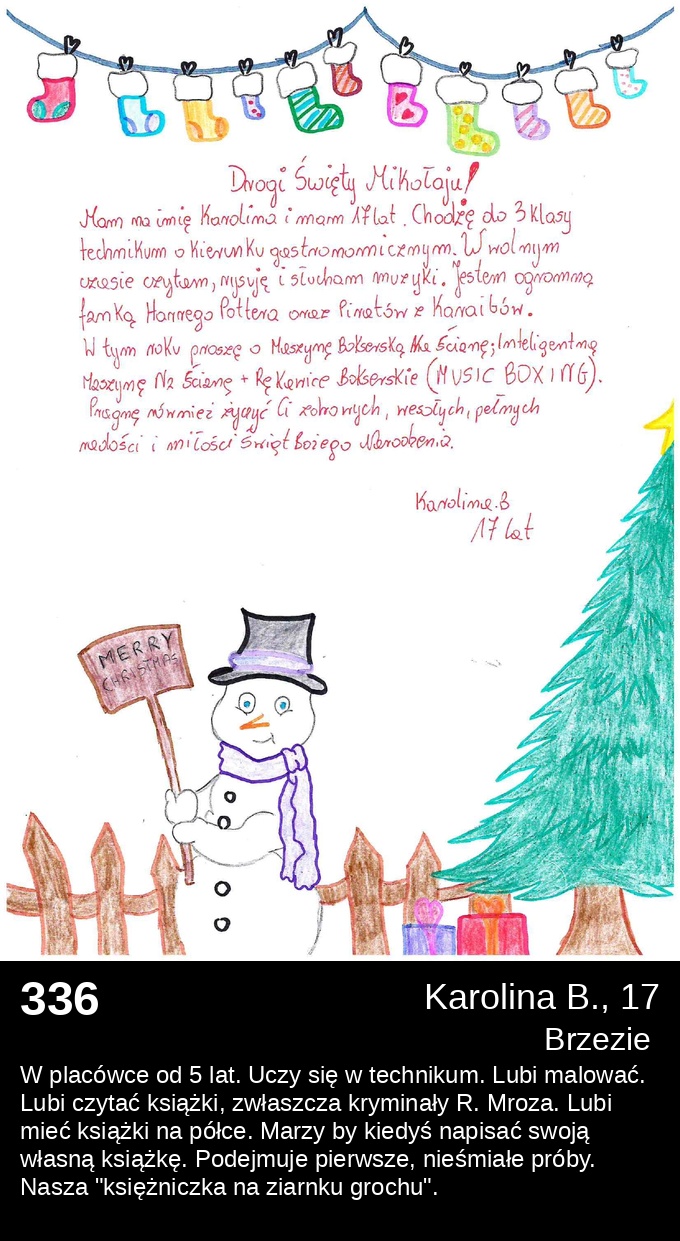 Drogi Święty Mikołaju!
Mam na imię Karolina i mam 17 lat. Chodzę do 3 klasy
technikum o kierunku gastronomicznym. W wolnym
czasie czytam, rysuję i słucham muzyki. Jestem ogromną
fanką Harrego Pottera oraz Piratów z Karaibów.
W tym roku proszę o Maszynę Bokserską Na Ścianę; Inteligentną
Maszynę Na Ścianę + Rękawice Bokserskie (MUSIC BOXING).
Pragnę również życzyć Ci zdrowych, wesołych, pełnych
radości i miłości Świąt Bożego Narodzenia.
Karolina.B
17 lat
MERRY
CHRISTMAS
336
Karolina B., 17
Brzezie
W placówce od 5 lat. Uczy się w technikum. Lubi malować.
Lubi czytać książki, zwłaszcza kryminały R. Mroza. Lubi
mieć książki na półce. Marzy by kiedyś napisać swoją
własną książkę. Podejmuje pierwsze, nieśmiałe próby.
Nasza "księżniczka na ziarnku grochu".